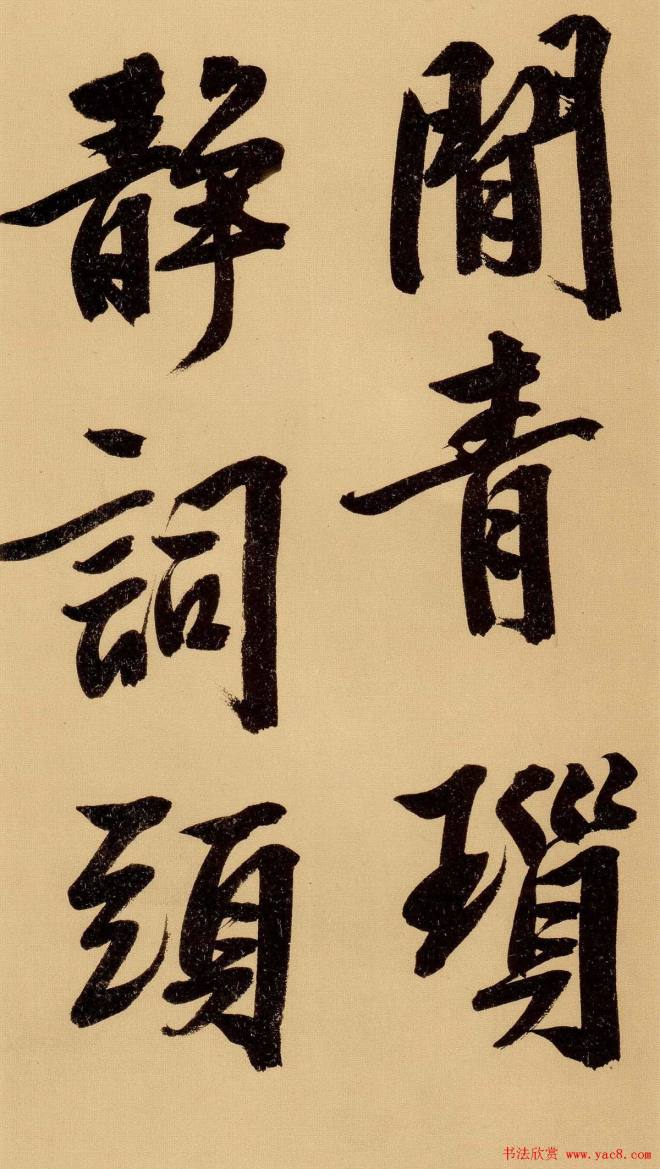 閒青瑣
靜詞頭
书法欣赏 www.yac8.com